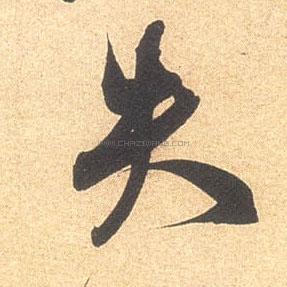 失
WWW.CHAZIWANG.COM